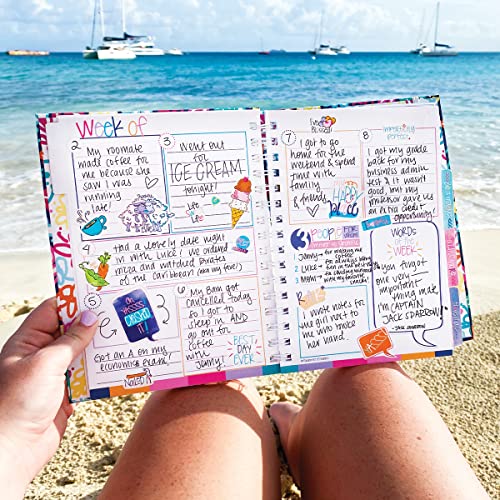 Week of
2
My roomate
made coffee for
me because
she saw I
was
running
late!
3
Went out
for
ICE CREAM
tonight!
4
Had a lovely date night
in with Luke! We ordered
pizza and watched Pirates
of the Caribbean! (our my fave!)
5
OH
YASSS
CRUSHED
IT!!
Got an A on my
economics exam!
NAILED
6
My 8am got
cancelled today
so I got to
sleep in AND
go out for
coffee
with
Jenny!
BEST
DAY
EVER
7
I got to go
home for the
weekend & spend
time with
family
& friends
8
I got my grade
back for my
business admin
test & it wasn't
good, but my
professor gave us
an extra credit
opportunity!
3
PEOPLE
Jenny-
Luke-
Mom-
I wrote notes for
the girl next to
me who broke
her hand.
YASSS
WORDS
OF THE
WEEK
"You forgot
one very
important
thing mate
I'm CAPTAIN
JACK SPARROW"
- JACK SPARROW